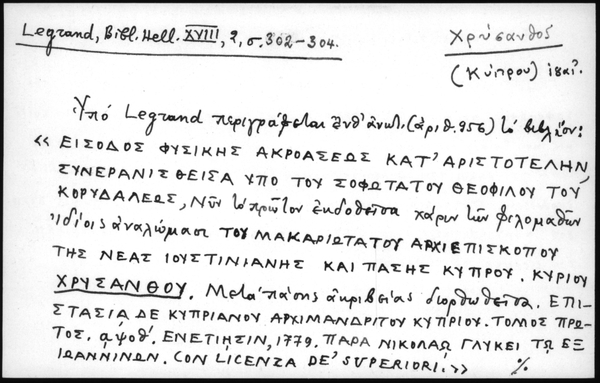 Legrand, Bibl. Hell. XVIII, 2, σ. 302-304.
Χρύσανθος
(Κύπρου)
Ὑπό Legrand περιγράφεται ἔνθ' ἀνωτ. (ἀριθ. 956) τὸ βιβλίον:
« ΕΙΣΟΔΟΣ ΦΥΣΙΚΗΣ ΑΚΡΟΑΣΕΩΣ ΚΑΤ' ΑΡΙΣΤΟΤΕΛΗΝ,
ΣΥΝΕΡΑΝΙΣΘΕΙΣΑ ΥΠΟ ΤΟΥ ΣΟΦΩΤΑΤΟΥ ΘΕΟΦΙΛΟΥ ΤΟΥ
ΚΟΡΥΔΑΛΕΩΣ, Νῦν τὸ πρῶτον ἐκδοθεῖσα χάριν τῶν φιλομαθῶν
ἰδίοις ἀναλώμασι ΤΟΥ ΜΑΚΑΡΙΩΤΑΤΟΥ ΑΡΧΙΕΠΙΣΚΟΠΟΥ
ΤΗΣ ΝΕΑΣ ΙΟΥΣΤΙΝΙΑΝΗΣ ΚΑΙ ΠΑΣΗΣ ΚΥΠΡΟΥ. ΚΥΡΙΟΥ
ΧΡΥΣΑΝΘΟΥ. Μετὰ πάσης ἀκριβείας διορθωθεῖσα. ΕΠΙ-
ΣΤΑΣΙΑ ΔΕ ΚΥΠΡΙΑΝΟΥ ΑΡΧΙΜΑΝΔΡΙΤΟΥ ΚΥΠΡΙΟΥ. ΤΟΜΟΣ ΠΡΩ-
ΤΟΣ. ͵αψοθ'. ΕΝΕΤΙΗΣΙΝ, 1779. ΠΑΡΑ ΝΙΚΟΛΑῼ ΓΛΥΚΕΙ Τῼ ΕΞ
ΙΩΑΝΝΙΝΩΝ. CON LICENZA DE' SUPERIORI. » %